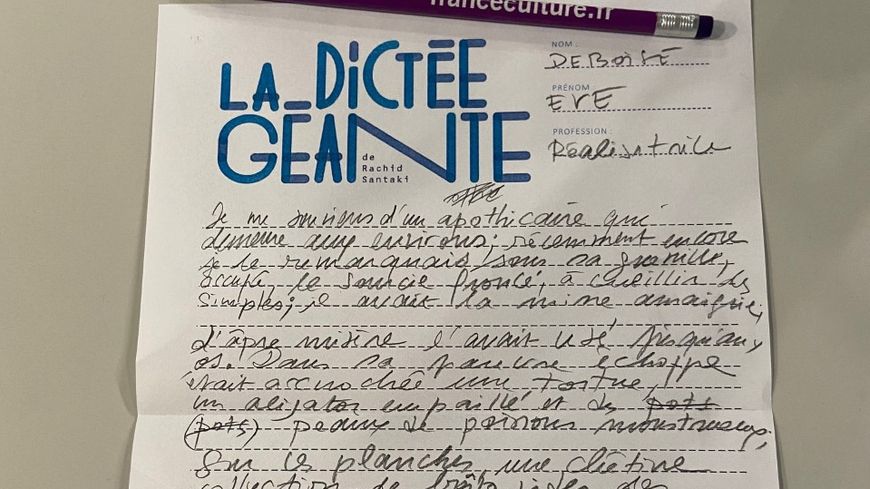 franceculture.fr
LA DICTÉE
GÉANTE
de
Rachid
Santaki
NOM :
DEBOISE
PRÉNOM
EVE
PROFESSION :
Réalisatrice
Je me souviens d'un apothicaire qui
demeure aux environs ; récemment encore
je le remarquais sous sa guenille,
occupé, le sourcil froncé, à cueillir des
simples ; il avait la mine amaigrie,
d'âpre misère l'avait usé jusqu'aux
os. Dans sa pauvre échoppe
était accrochée une tortue,
un aligator empaillé et des pots
(pots) peaux de poissons monstrueux ;
Sur ces planches, une chétive
collection de